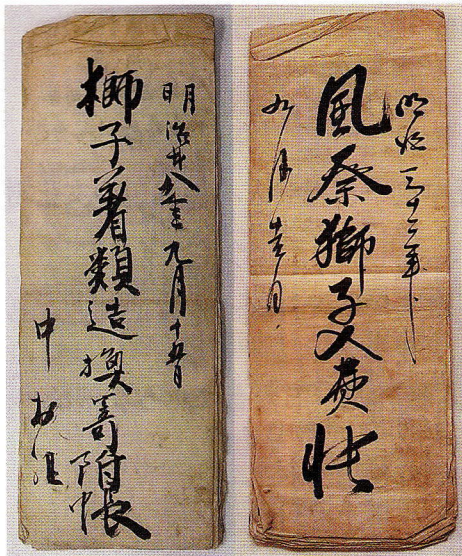 明治三十二年
風祭獅子入費帳
九月吉日
明治廿八年九月十五日
獅子著類造換寄附帳
中